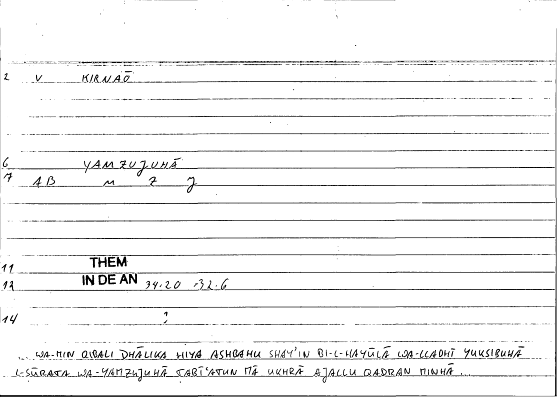 2 V KIRNAŌ
6 YAMZUJUHĀ
7 AB M Z J
11 THEM
12 IN DE AN 34.20 -32.6
14 :
WA-MIN QIBALI DHĀLIKA HIYA ASHBAHU SHAY'IN BI-L-HAYŪLĀ WA-LLADHĪ YUKSIBUHĀ
L-SŪRATA WA-YAMZUJUHĀ TABĪ'ATUN MĀ UKHRĀ AJALLU QADRAN MINHĀ...